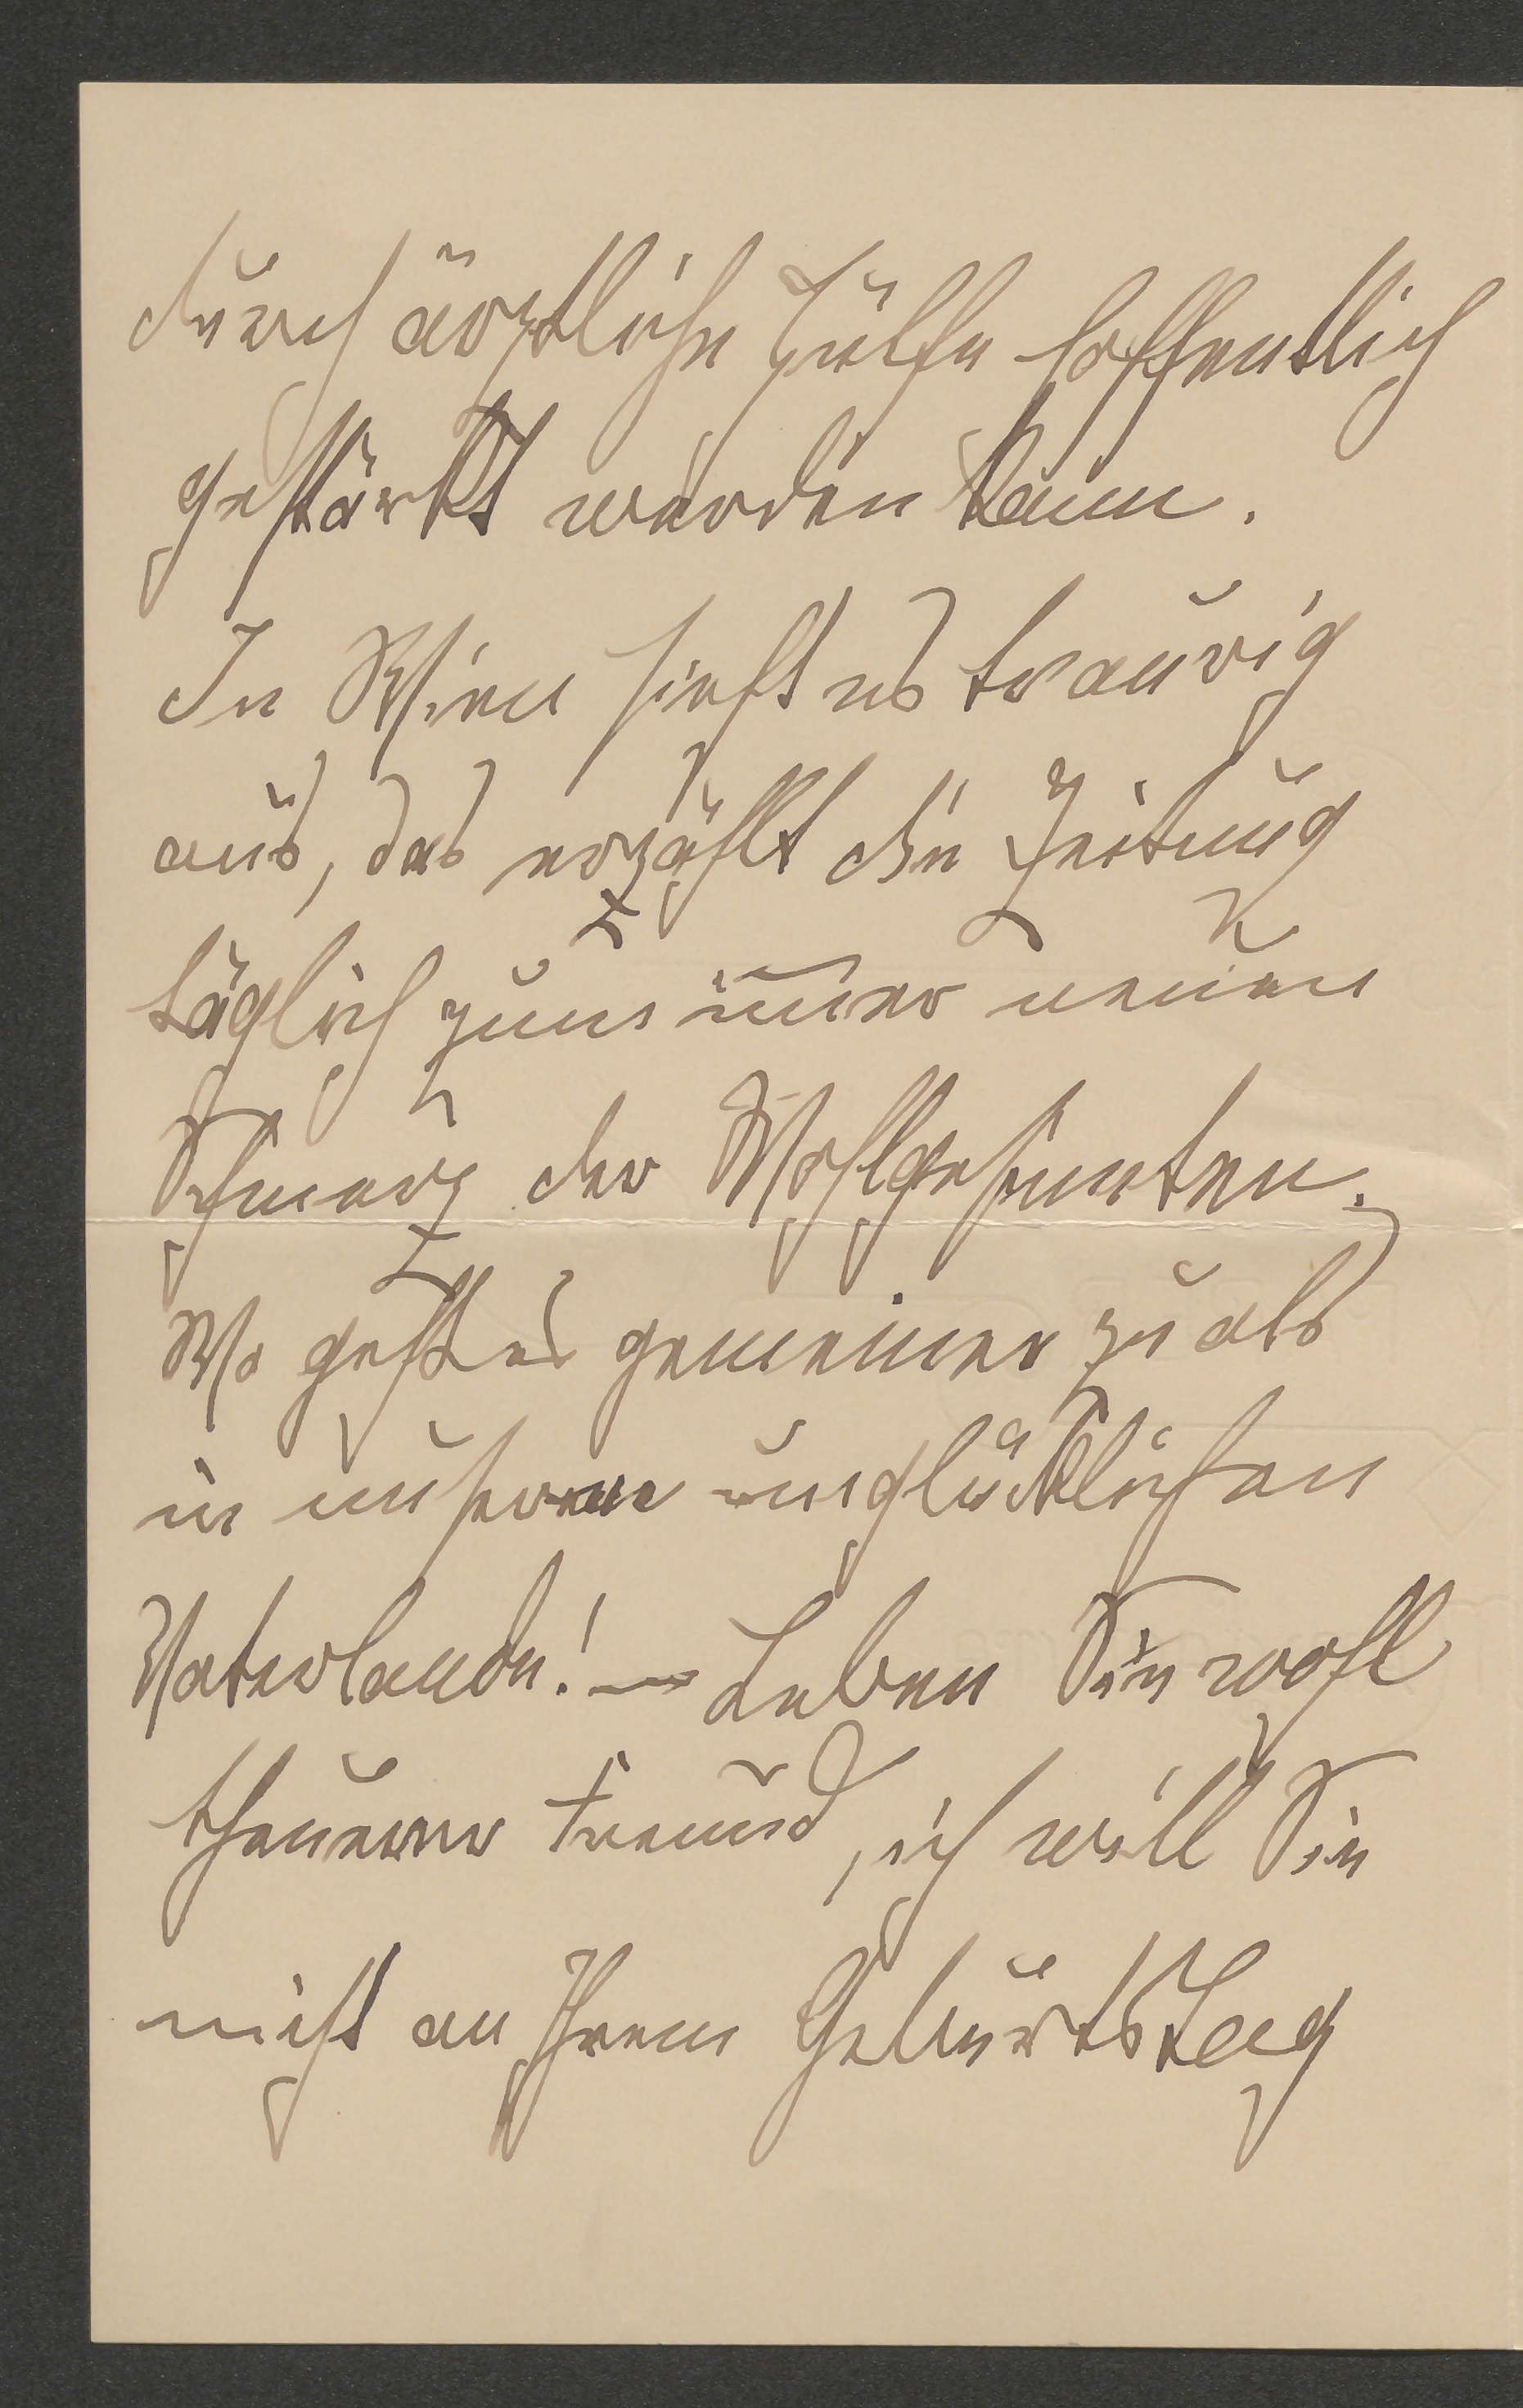 durch ärztliche Hülfe hoffentlich
gestärkt werden kann.
In Wien sieht es traurig
aus, das erzählt die Zeitung
täglich zum im̅er neuen
Schmerz der Wohlgesinnten.
Wo geht es gemeiner zu als
in unserem unglücklichen
Vaterlande! – Leben Sie wohl
theuerer Freund, ich will Sie
nicht an Ihrem Geburtstag